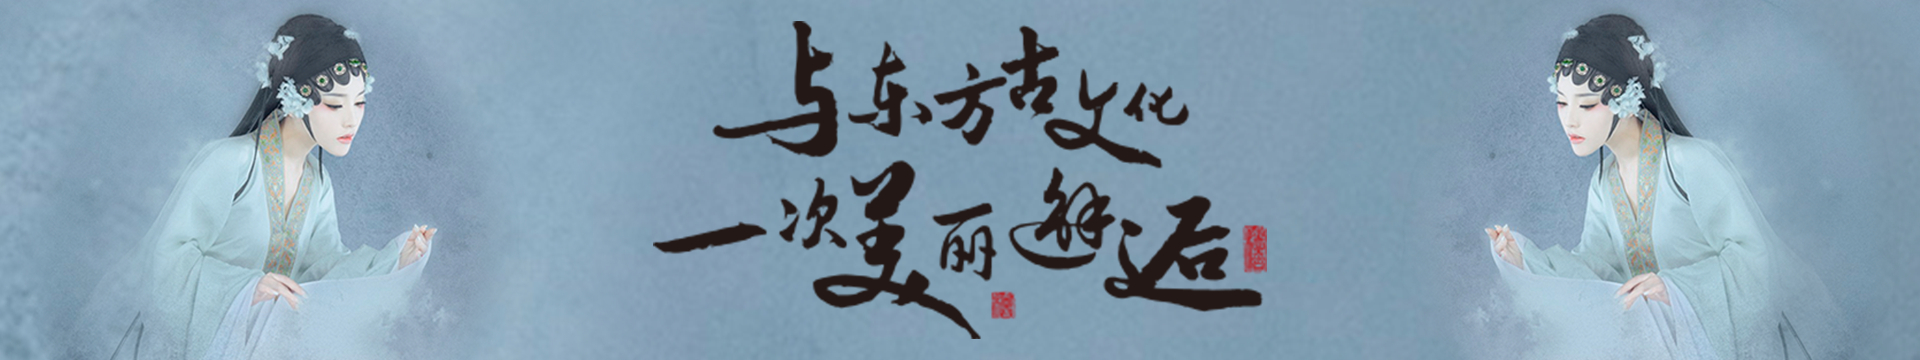 与东方古文化
一次美丽邂逅